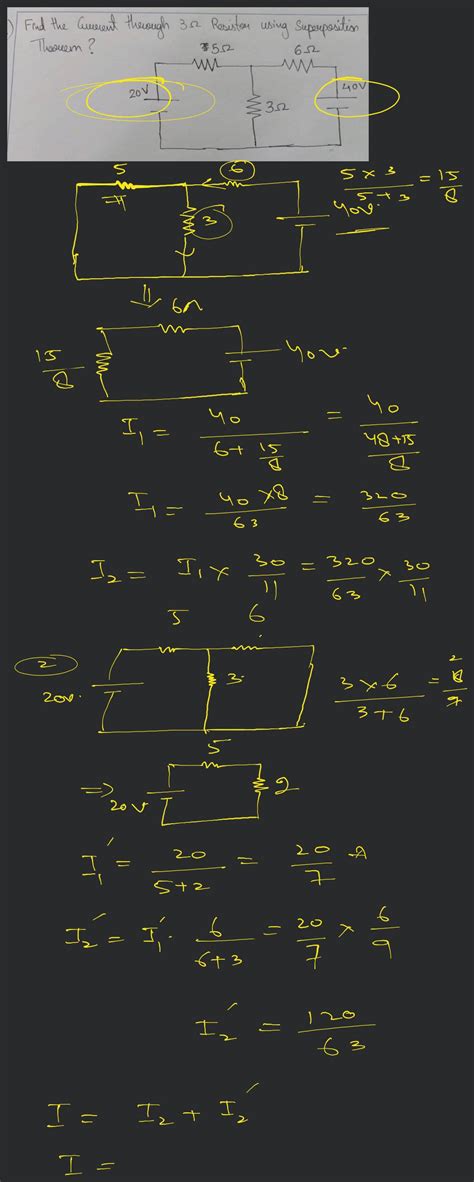 Find the Current through 3Ω Resistor using Superposition
Theorem ?
5Ω 6Ω
20V 3Ω 40V
5 6
3
40v.
5 × 3 / 5 + 3 = 15 / 8
⇓ 6Ω
15 / 8 40v.
I₁ = 40 / 6 + 15/8 = 40 / 48+15/8
I₁ = 40 × 8 / 63 = 320 / 63
I₂ = I₁ × 30 / 11 = 320 / 63 × 30 / 11
5 6
2
20v. 3.
3 × 6 / 3 + 6 = 2
5
⇒ 20V 2
I₁' = 20 / 5+2 = 20 / 7 A
I₂' = I₁' . 6 / 6+3 = 20 / 7 × 6 / 9
I₂' = 120 / 63
I = I₂ + I₂'
I =